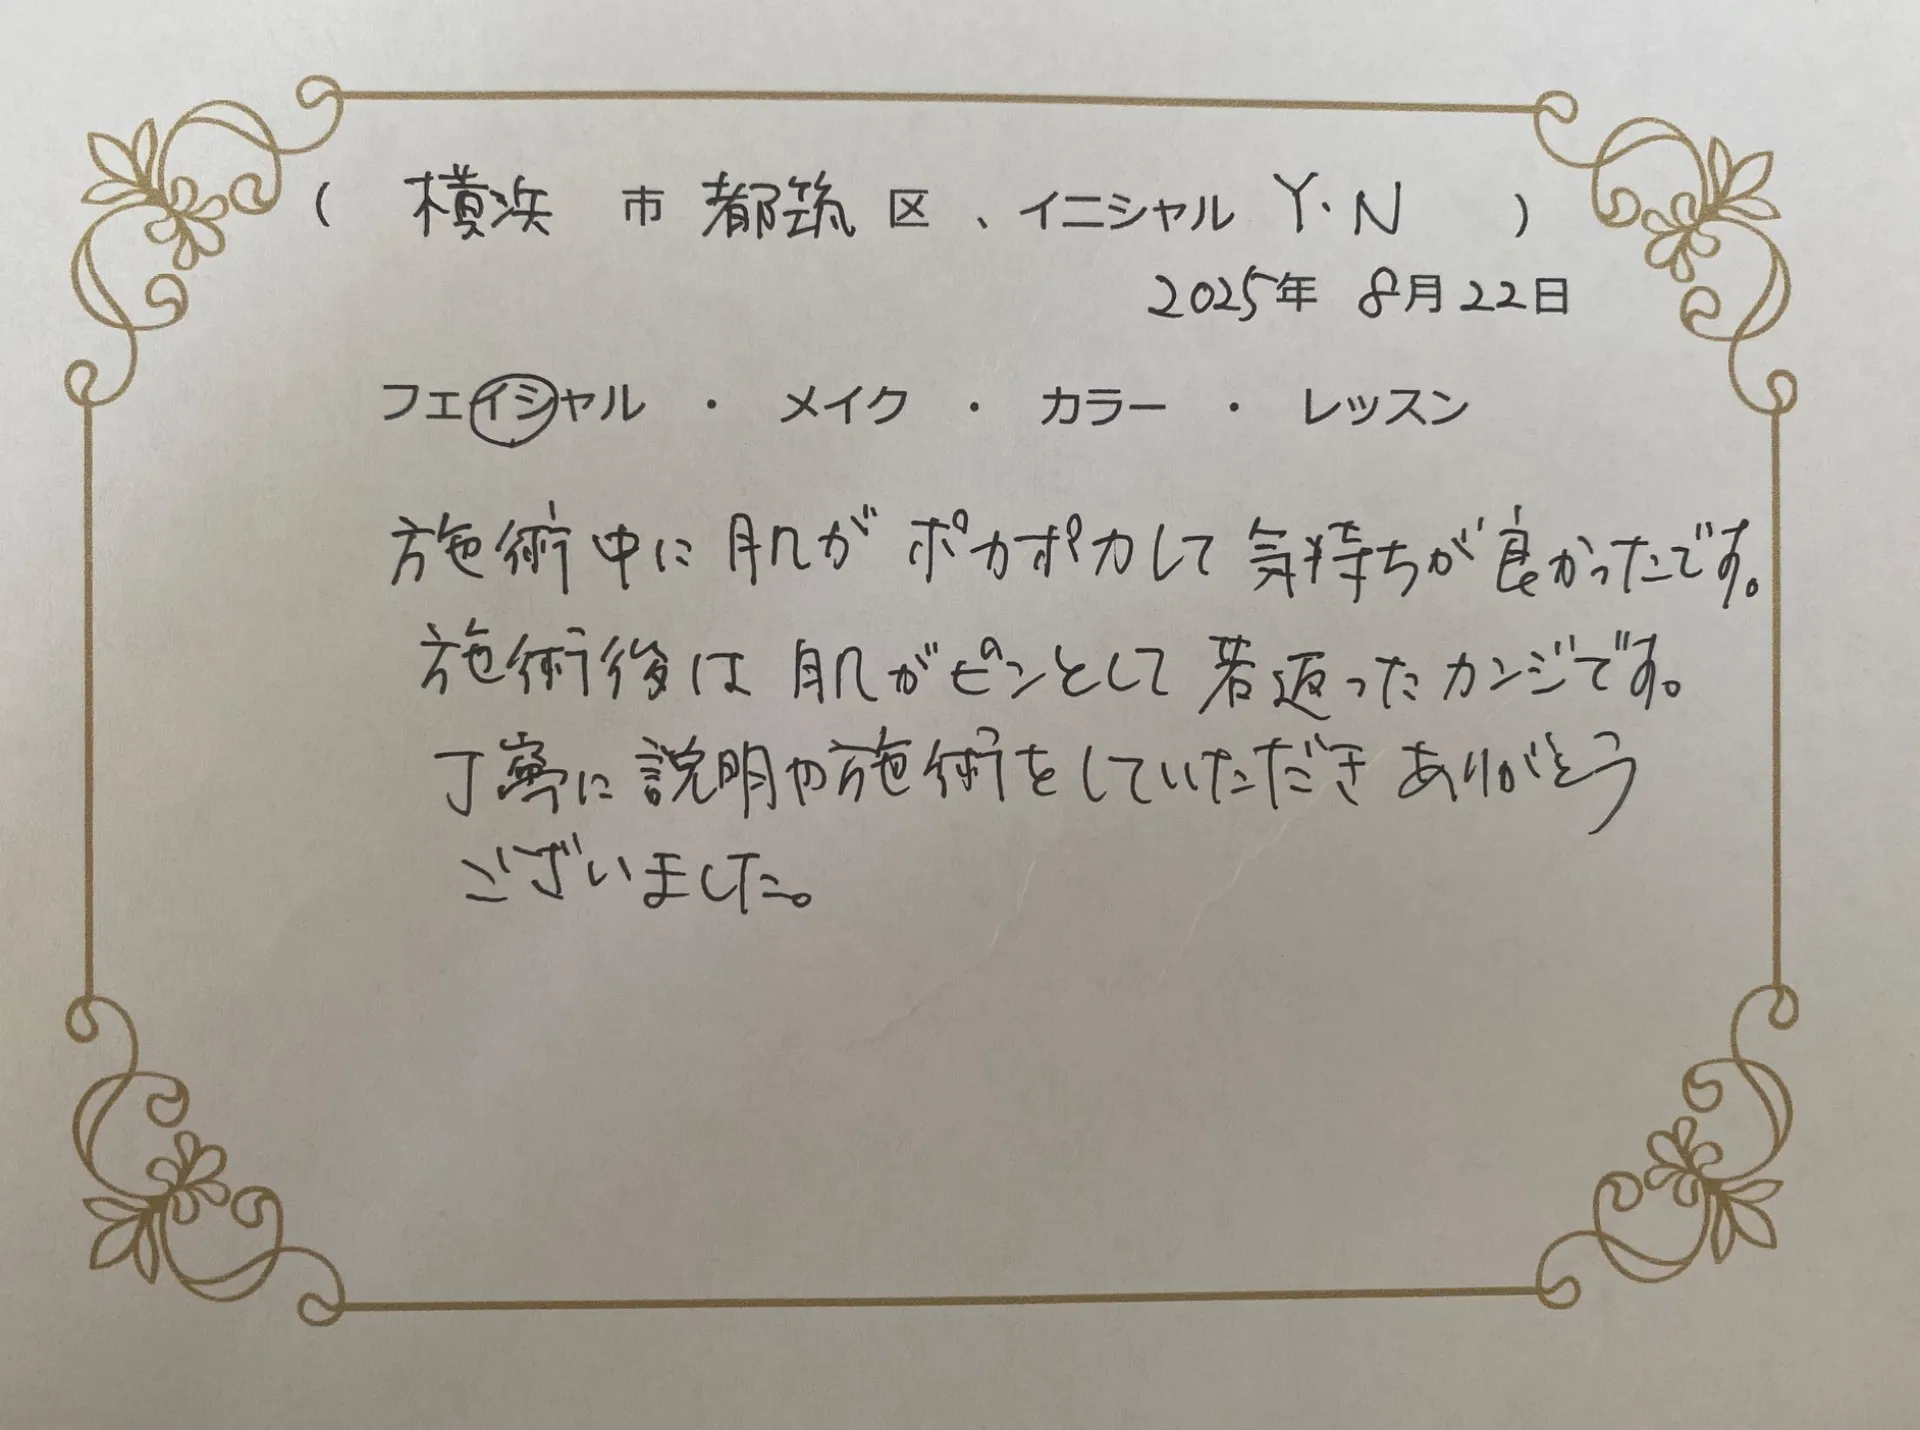 ( 横浜 市 都筑 区 、イニシャル Y・N )
2025年 8月22日
フェイシャル ・ メイク ・ カラー ・ レッスン
施術中に肌がポカポカして気持ちが良かったです。
施術後は肌がピンとして若返ったカンジです。
丁寧に説明や施術をしていただきありがとう
ございました。